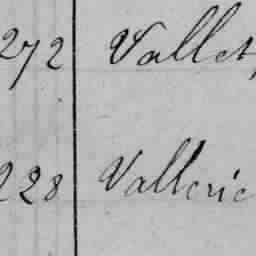 272 Vallet,
228 Vallerie